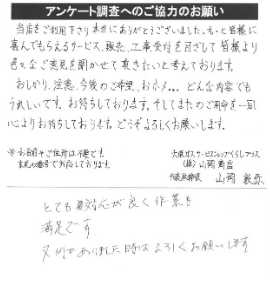 アンケート調査へのご協力のお願い
当店をご利用下さり本当にありがとうございました。もっと皆様に
喜んでもらえるサービス、販売、工事受付を目ざして皆様より
色々なご意見を聞かせて頂きたいと考えております。
おしかり、注意、今後のご希望、おホメ... どんな内容でも
うれしいです。お待ちしております。そしてまたのご用命を一同
心よりお待ちしております。どうぞよろしくお願いします。
※お名前やご住所は不要です。
大阪ガスサービスショップくらしプラス
(株)山岡商店
山岡
とても対応が良く作業も
満足です
又何かありました時はよろしくお願いします